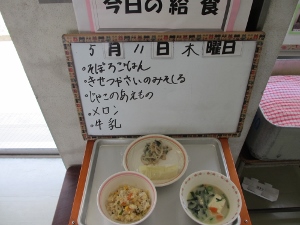 今日の給食
5月11日木曜日
・そぼろごはん
・きせつやさいのみそしる
・じゃこのあえもの
・メロン
・牛乳